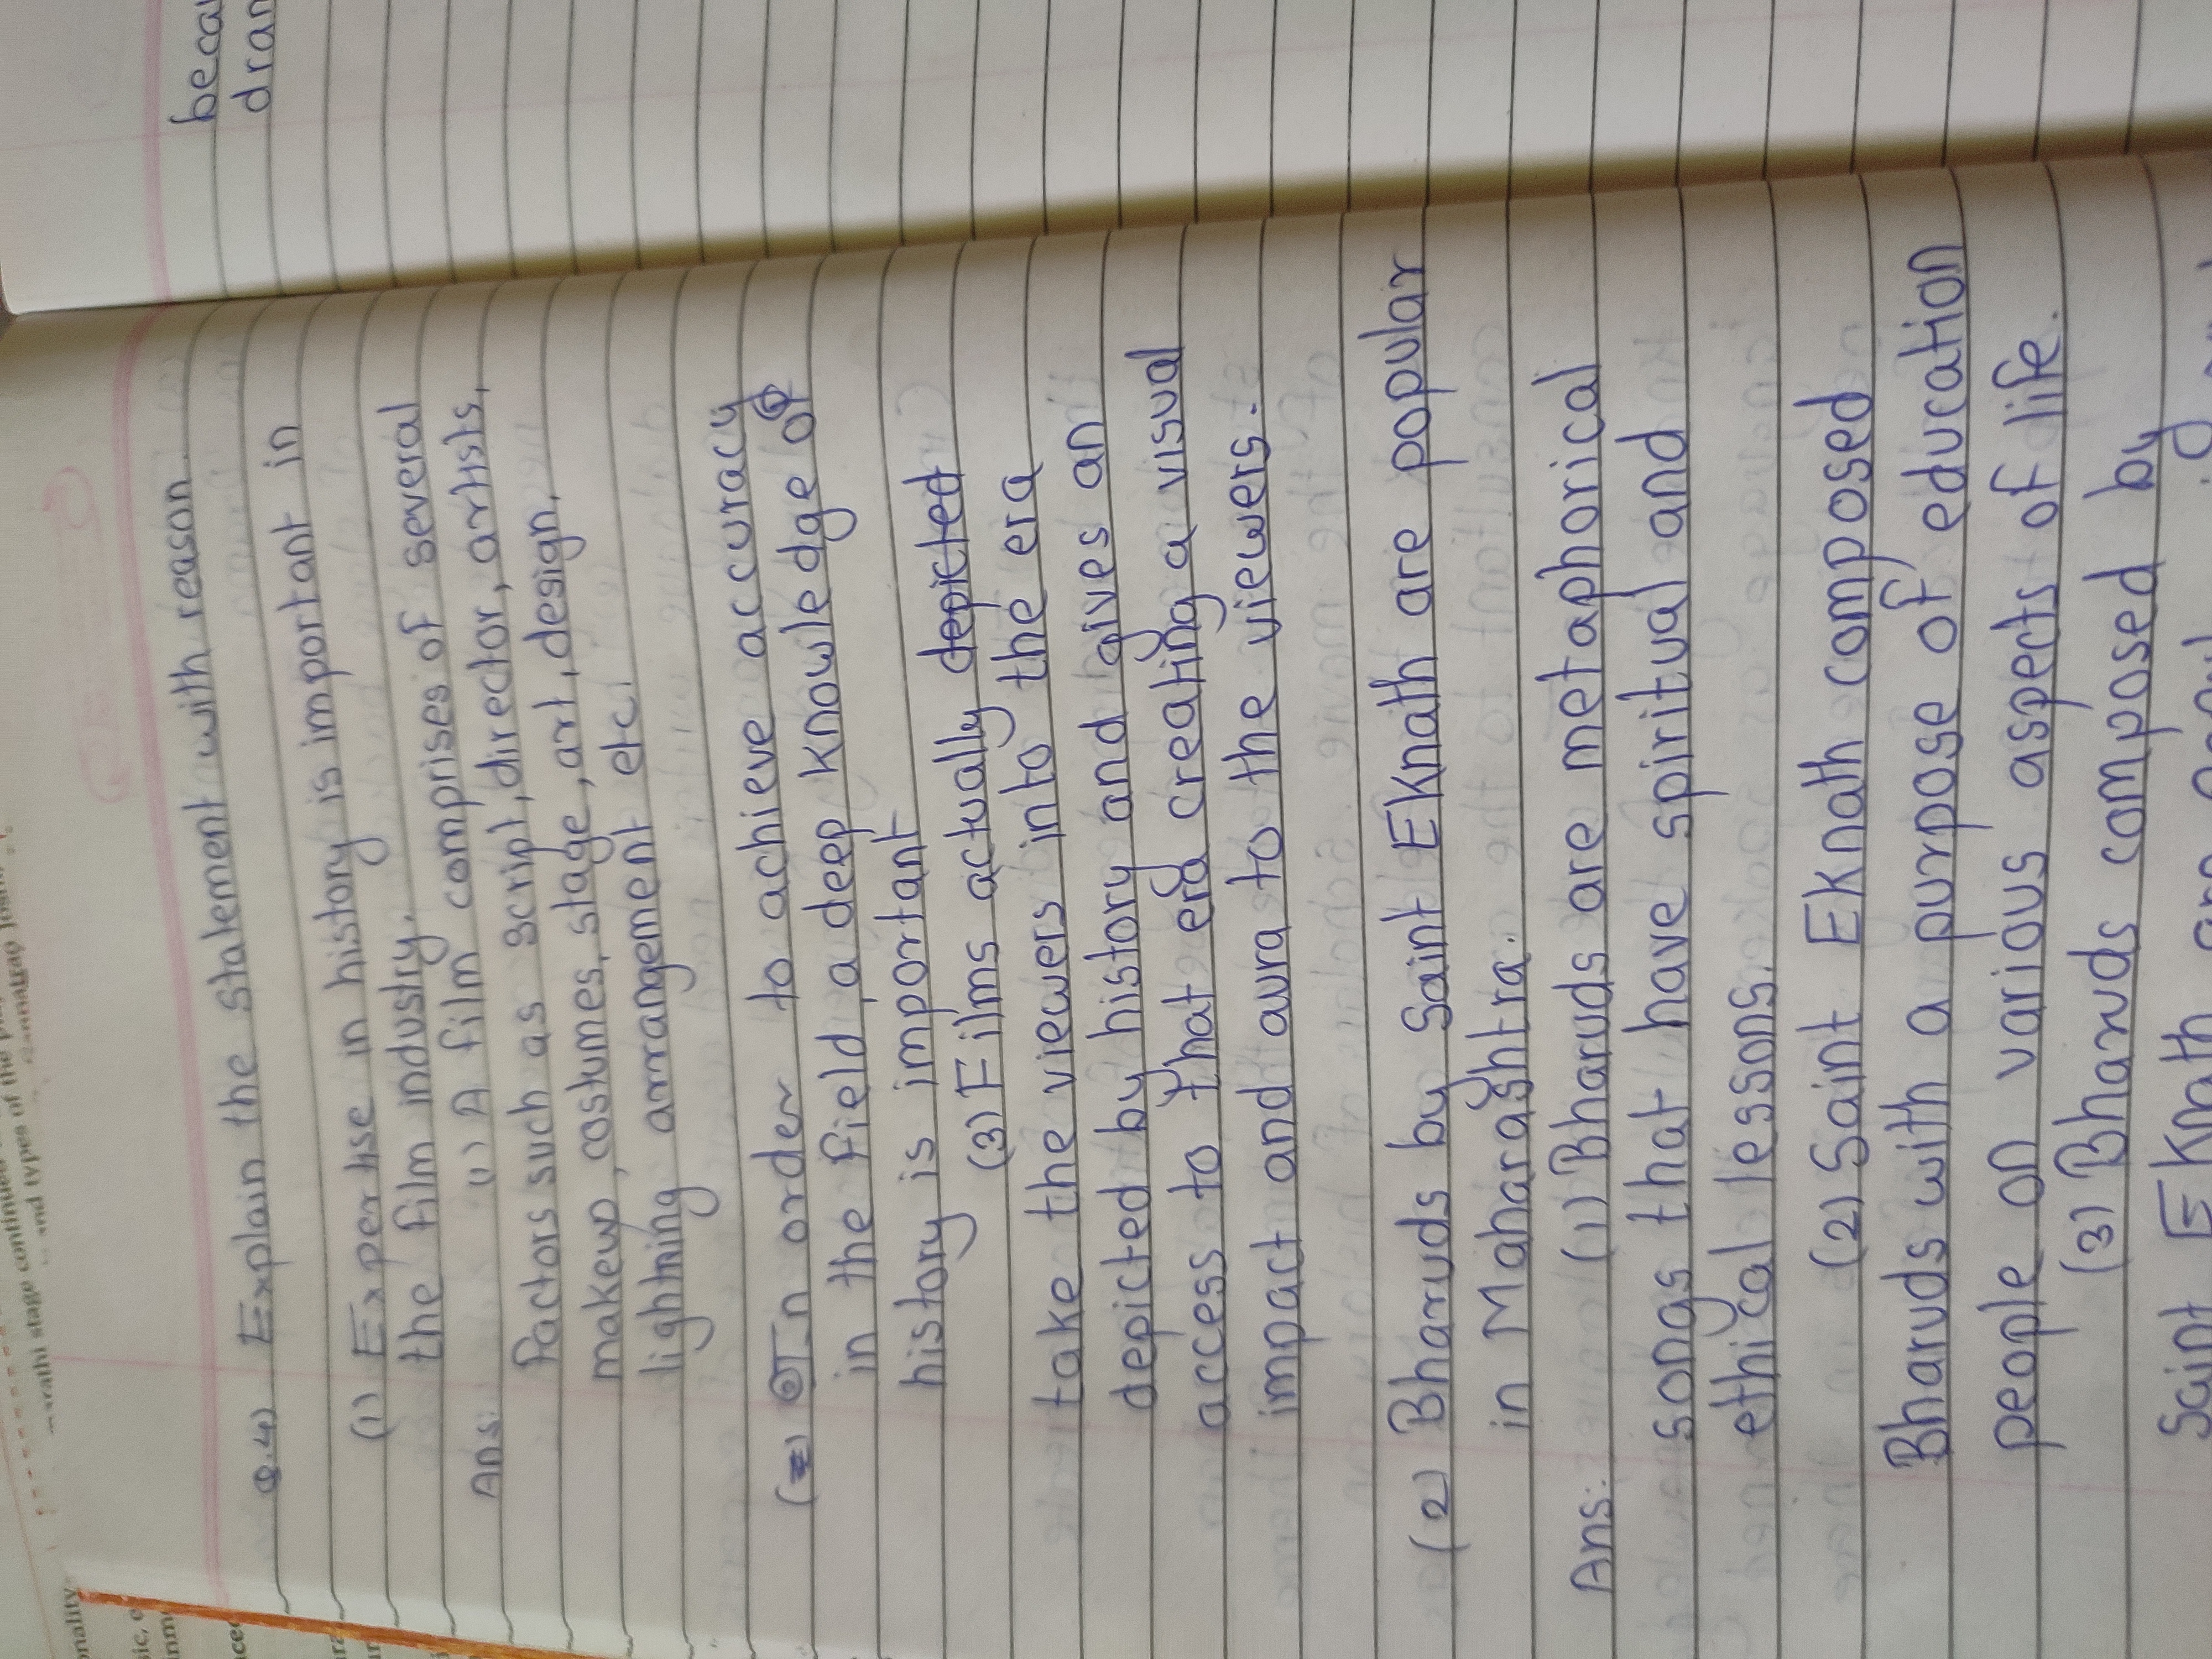 Q.4) Explain the statement with reason
(1) Expertise in history is important in
the film industry.
Ans: (1) A film comprises of several
factors such as script, director, artists,
makeup, costumes, stage, art, design,
lightning arrangement etc.
(2) In order to achieve accuracy
in the field, a deep knowledge of
history is important
(3) Films actually depicted
take the viewers into the era
depicted by history and gives an
access to that era creating a visual
impact and aura to the viewers.
(2) Bharuds by Saint Eknath are popular
in Maharashtra.
Ans: (1) Bharuds are metaphorical
songs that have spiritual and
ethical lessons.
(2) Saint Eknath composed
Bharuds with a purpose of education
people on various aspects of life.
(3) Bharuds composed by
Saint Eknath are
beca
dran
arathi stage continued
and types of the
onality